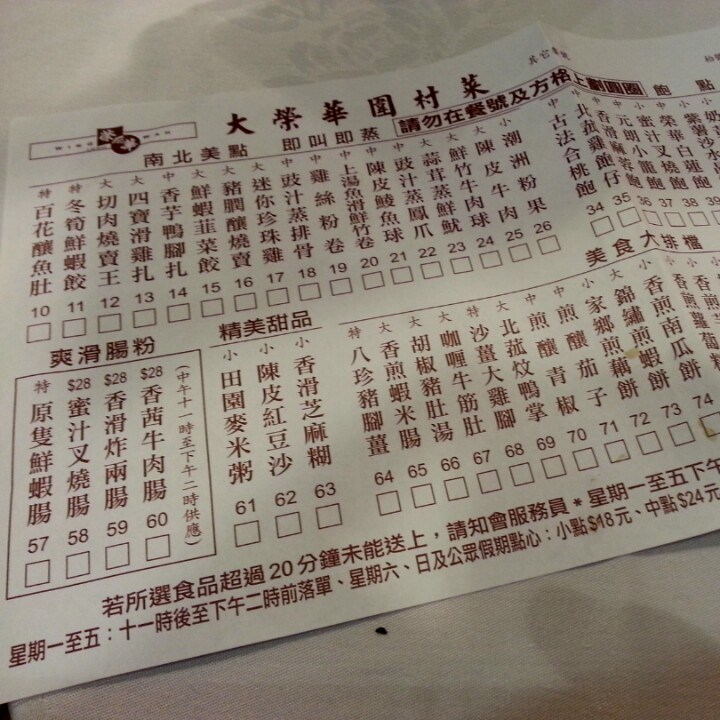 WING WAH
大榮華圍村菜
南北美點 即叫即蒸 請勿在餐號及方格上劃圓圈
特 百花釀魚肚 10
特 冬筍鮮蝦餃 11
大 切肉燒賣王 12
大 四寶滑雞扎 13
中 香芋鴨腳扎 14
大 鮮蝦韮菜餃 15
大 豬膶釀燒賣 16
大 迷你珍珠雞 17
中 豉汁蒸排骨 18
中 雞絲粉卷 19
上湯魚滑鮮竹卷 20
中 陳皮鯪魚球 21
中 豉汁蒸鳳爪 22
大 蒜茸蒸鮮魷 23
大 鮮竹牛肉球 24
大 陳皮牛肉 25
小 潮洲粉果 26
飽點
中 古法合桃飽 34
中 北菰雞飽仔 35
小 香滑麻蓉飽 36
中 元朗小籠飽 37
小 蜜汁叉燒飽 38
39
爽滑腸粉
特 原隻鮮蝦腸 57
$28 蜜汁叉燒腸 58
$28 香滑炸兩腸 59
$28 香茜牛肉腸 60
(中午十一時至下午二時供應)
精美甜品
小 田園麥米粥 61
小 陳皮紅豆沙 62
小 香滑芝麻糊 63
美食大排檔
特 八珍豬腳薑 64
大 香煎蝦米腸 65
大 胡椒豬肚湯 66
大 咖喱牛筋肚 67
特 沙薑大雞腳 68
大 北菰炆鴨掌 69
中 煎釀青椒 70
中 煎釀茄子 71
小 家鄉煎藕餅 72
大 錦繡煎蝦餅 73
小 香煎南瓜餅 74
若所選食品超過20分鐘未能送上，請知會服務員＊星期一至五下午
星期一至五：十一時後至下午二時前落單、星期六、日及公眾假期點心：小點$18元、中點$24元